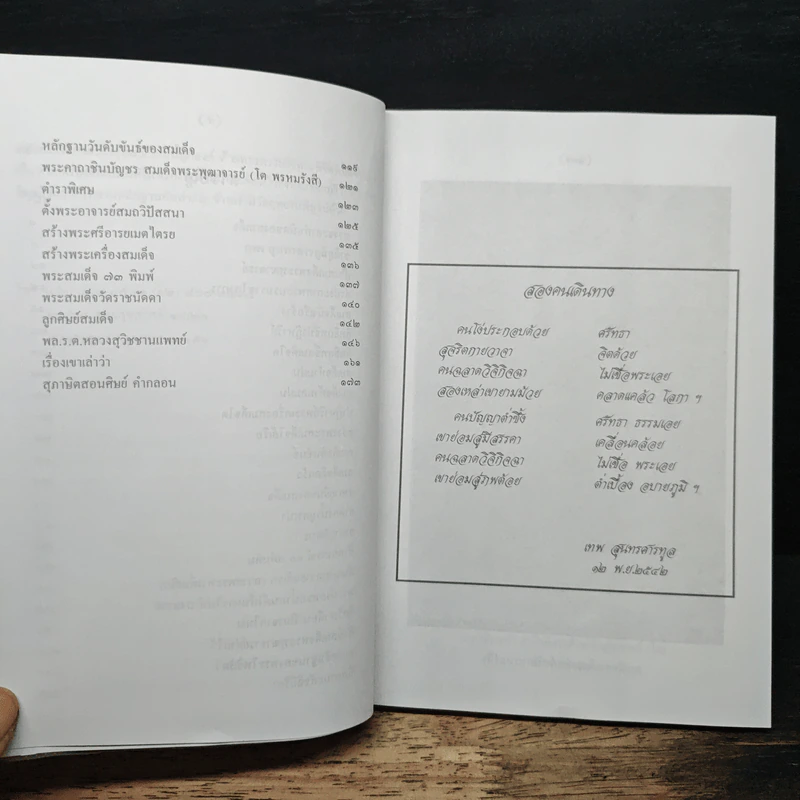 หลักฐานวันดับขันธ์ของสมเด็จ ๑๑๙
พระคาถาชินบัญชร สมเด็จพระพุฒาจารย์ (โต พรหมรังสี) ๑๒๑
ตำราพิเศษ ๑๒๓
ตั้งพระอาจารย์สมถวิปัสสนา ๑๒๕
สร้างพระศรีอารยเมตไตรย ๑๓๕
สร้างพระเครื่องสมเด็จ ๑๓๖
พระสมเด็จ ๗๓ พิมพ์ ๑๓๗
พระสมเด็จวัดราชนัดดา ๑๔๐
ลูกศิษย์สมเด็จ ๑๔๒
พล.ร.ต.หลวงสุวิชชานแพทย์ ๑๔๖
เรื่องเขาเล่าว่า ๑๖๑
สุภาษิตสอนศิษย์ คำกลอน ๑๗๓
สองคนเดินทาง
คนโง่ประกอบด้วย ศรัทธา
สุจริตกายวาจา จิตด้วย
คนฉลาดวิจิกิจฉา ไม่เชื่อพระเอย
สองเหล่าเขายามม้วย คลาดแคล้ว โลกา ฯ
คนปัญญาต่ำซึ้ง ศรัทธา ธรรมเอย
เขาย่อมสู่มีสรรคา เคลื่อนคล้อย
คนฉลาดวิจิกิจฉา ไม่เชื่อ พระเอย
เขาย่อมสู่ภพต้อย ต่ำเบื้อง อบายภูมิ ฯ
เทพ สุนทรศารทูล
๑๒ พ.ย.๒๕๔๒